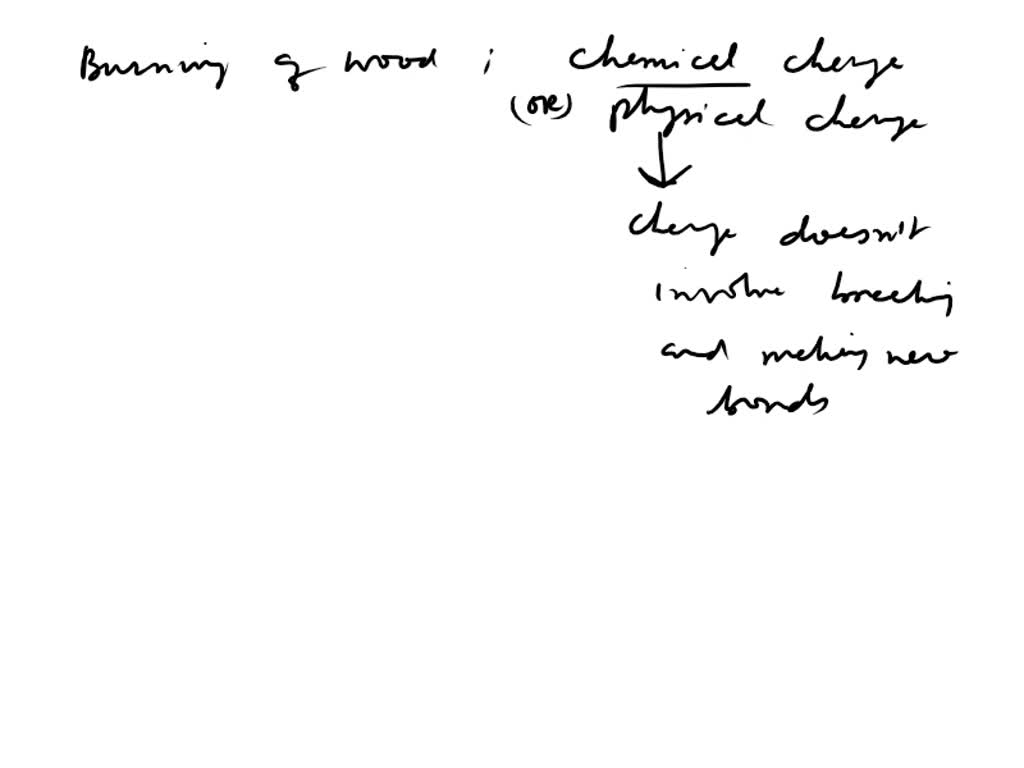 Burning of wood ; chemical change
(or) physical change
change doesn't
involve breaking
and making new
bonds